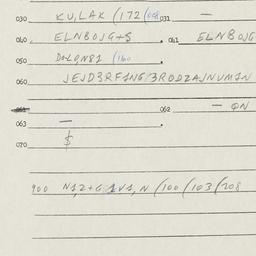 030 KU,LAK (172 (008 031 —
040 ELNBOJG+$ . 041 ELNBOJG
050 D+LQN$1 (160 .
060 JEJD3RF1NG/3RODZAJNUM1N
061 062 — QN
063 — .
070 $
900 N1,2+G 1V1,N (100 (103 (208